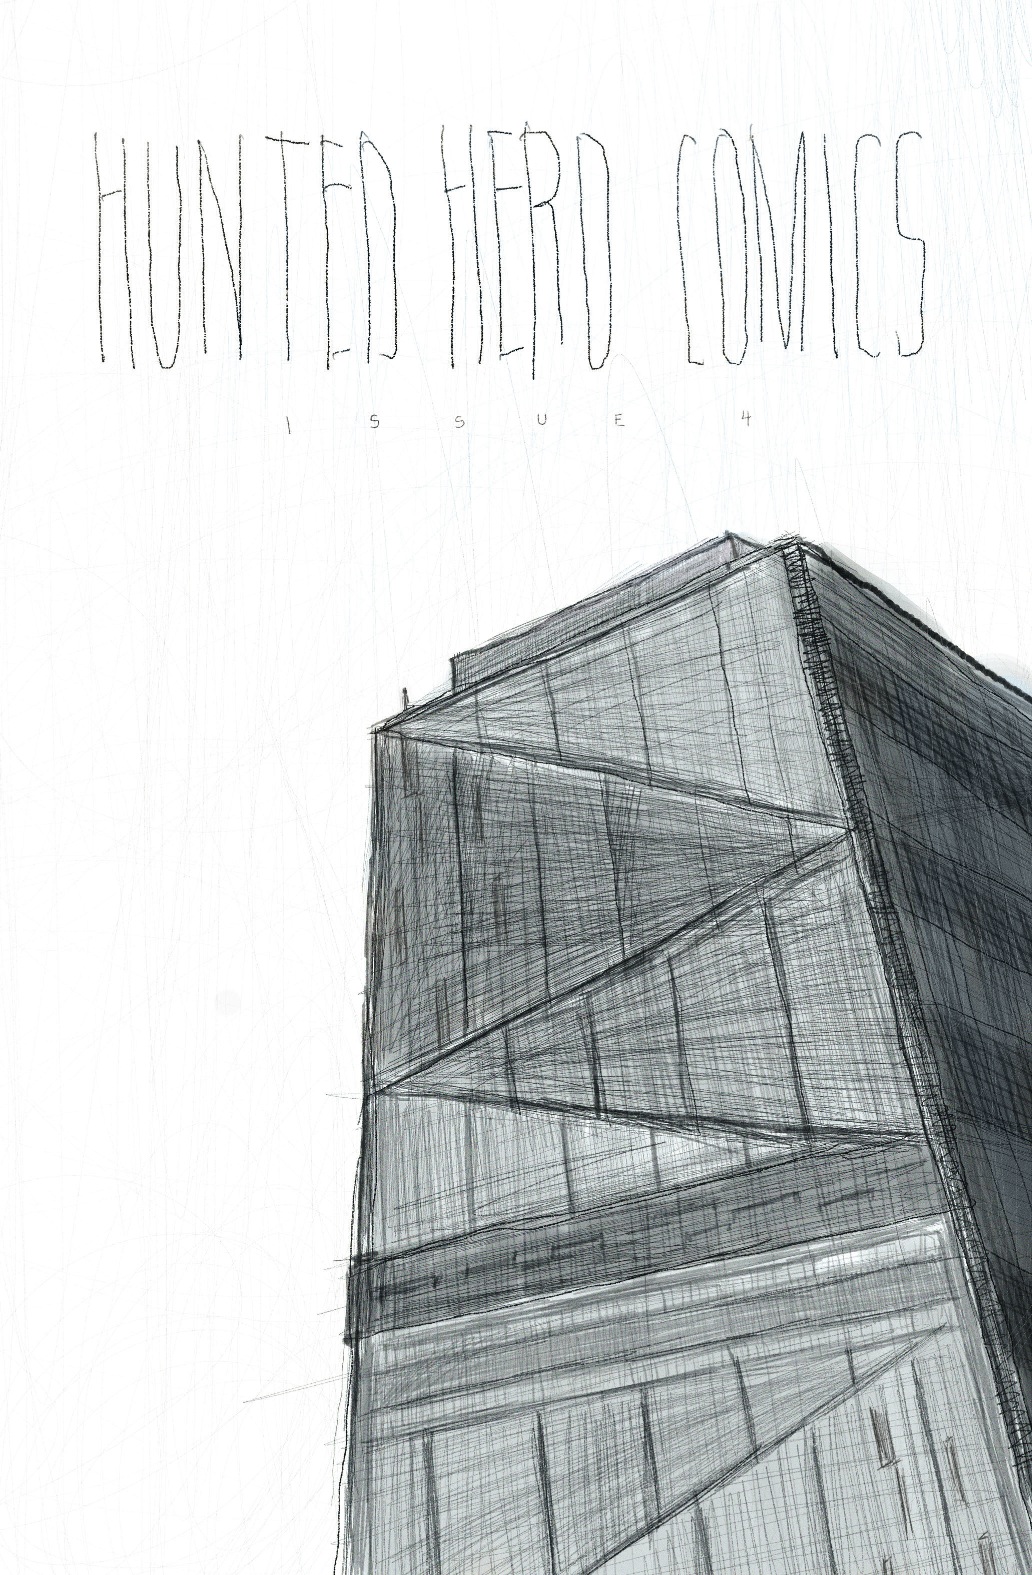 HUNTED HERO COMICS
ISSUE 4